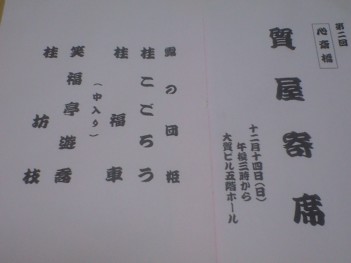 第二回
心斎橋
質屋寄席
十二月十四日(日)
午後三時から
大賀ビル五階ホール
露の団姫
桂こごろう
桂福車
(中入り)
笑福亭遊喬
桂坊枝